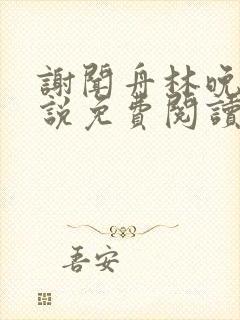 謝聞舟林晚
說免費閱讀
吾安